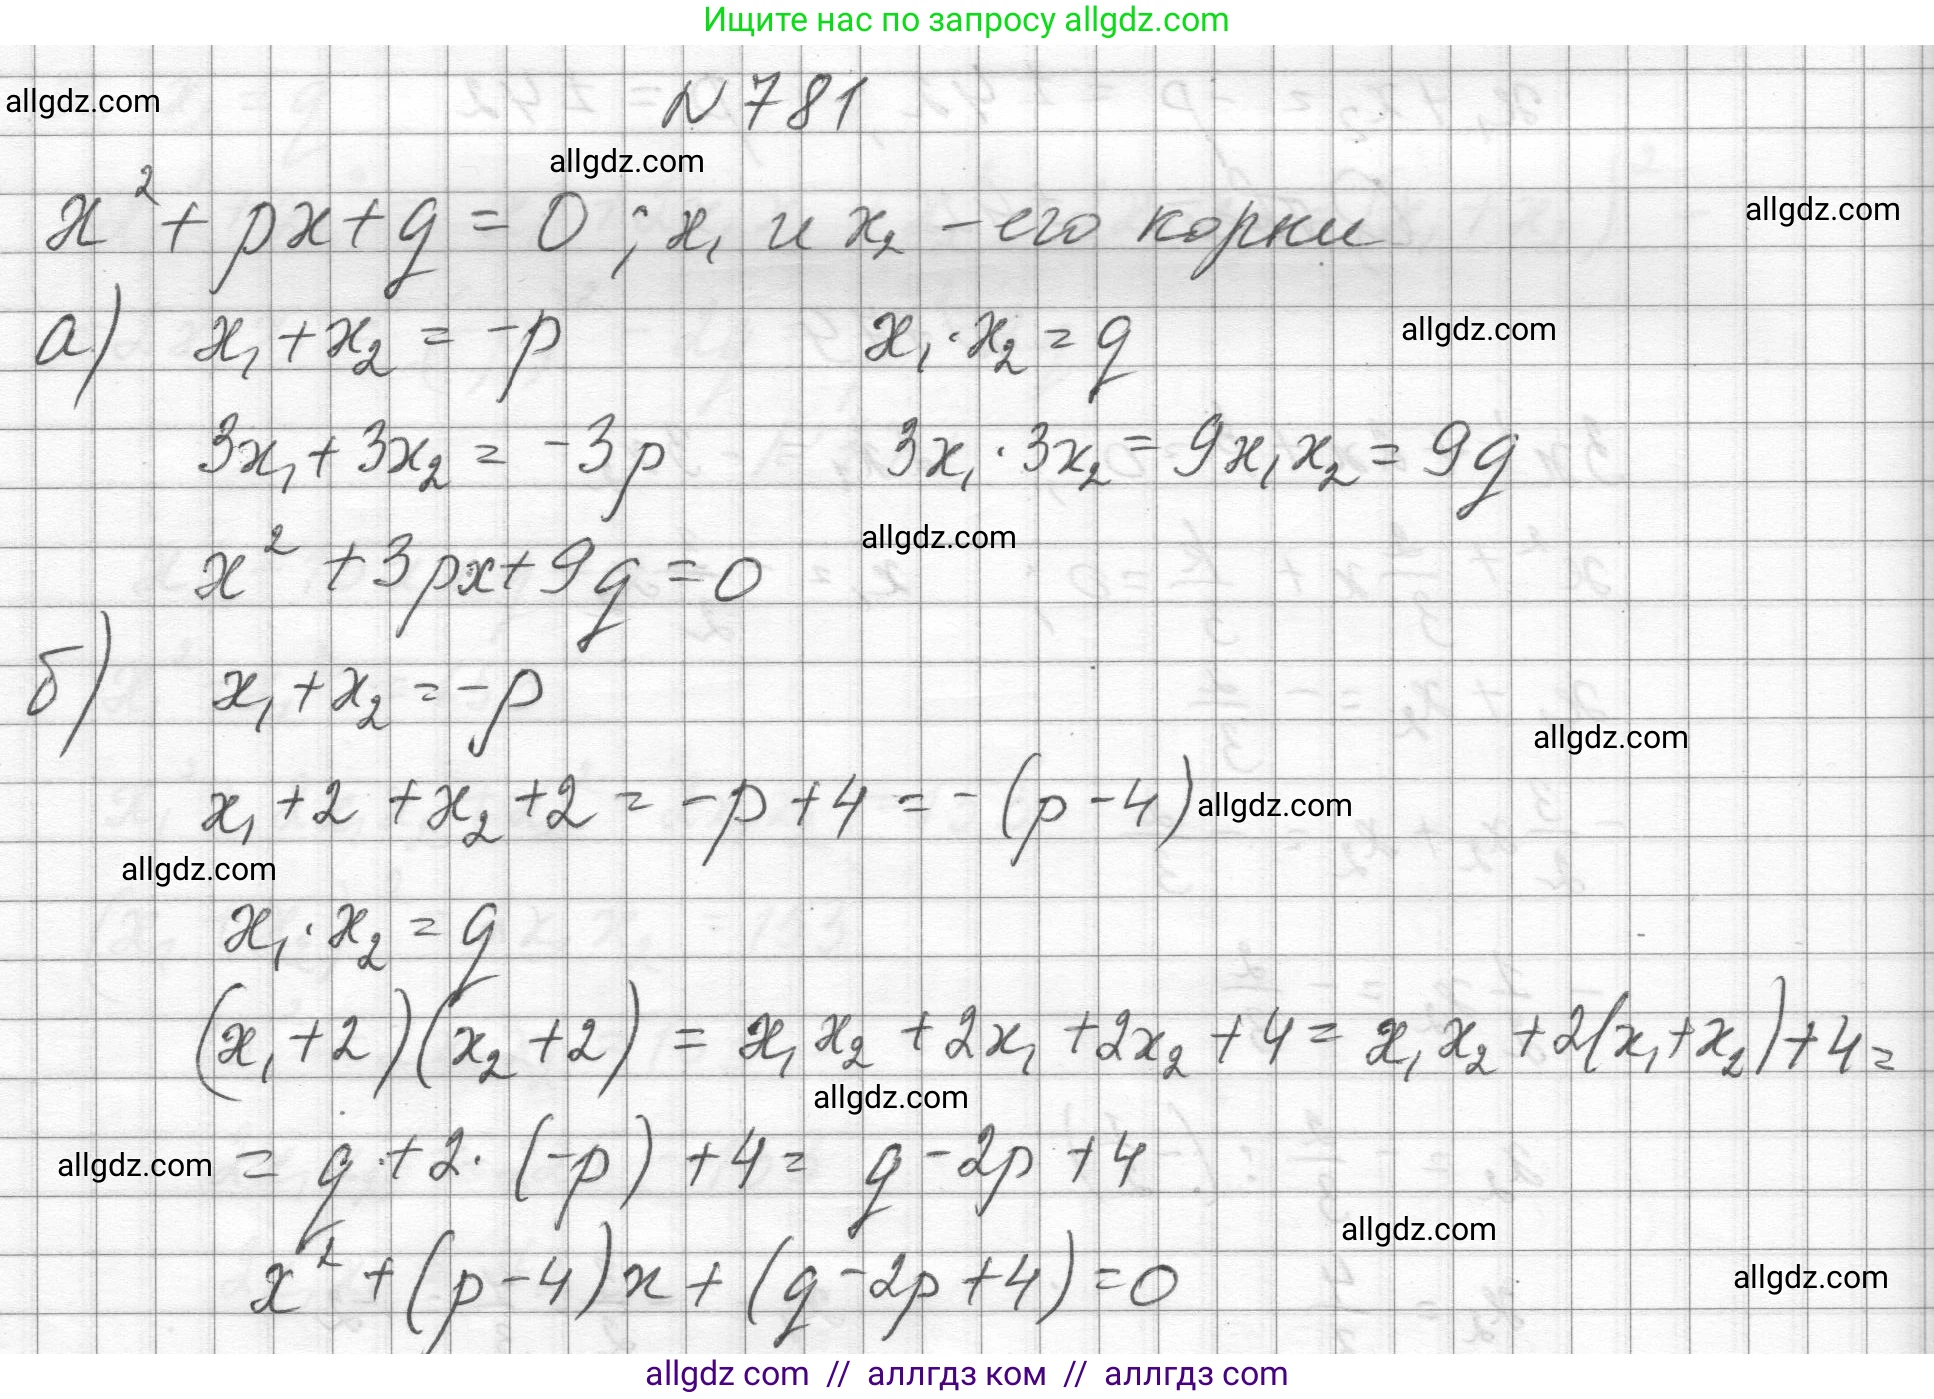 Ищите нас по запросу allgdz.com
allgdz.com
N 781
allgdz.com
x² + px + q = 0 ; x₁ и x₂ – его корни
allgdz.com
а) x₁ + x₂ = -p x₁ · x₂ = q
allgdz.com
3x₁ + 3x₂ = -3p 3x₁ · 3x₂ = 9x₁x₂ = 9q
allgdz.com
x² + 3px + 9q = 0
б) x₁ + x₂ = -p
allgdz.com
x₁ + 2 + x₂ + 2 = -p + 4 = -(p - 4)
allgdz.com
allgdz.com
x₁ · x₂ = q
(x₁ + 2)(x₂ + 2) = x₁x₂ + 2x₁ + 2x₂ + 4 = x₁x₂ + 2(x₁ + x₂) + 4 =
allgdz.com
allgdz.com
= q + 2 · (-p) + 4 = q - 2p + 4
allgdz.com
x² + (p - 4)x + (q - 2p + 4) = 0
allgdz.com
allgdz com // аллгдз ком // аллгдз com